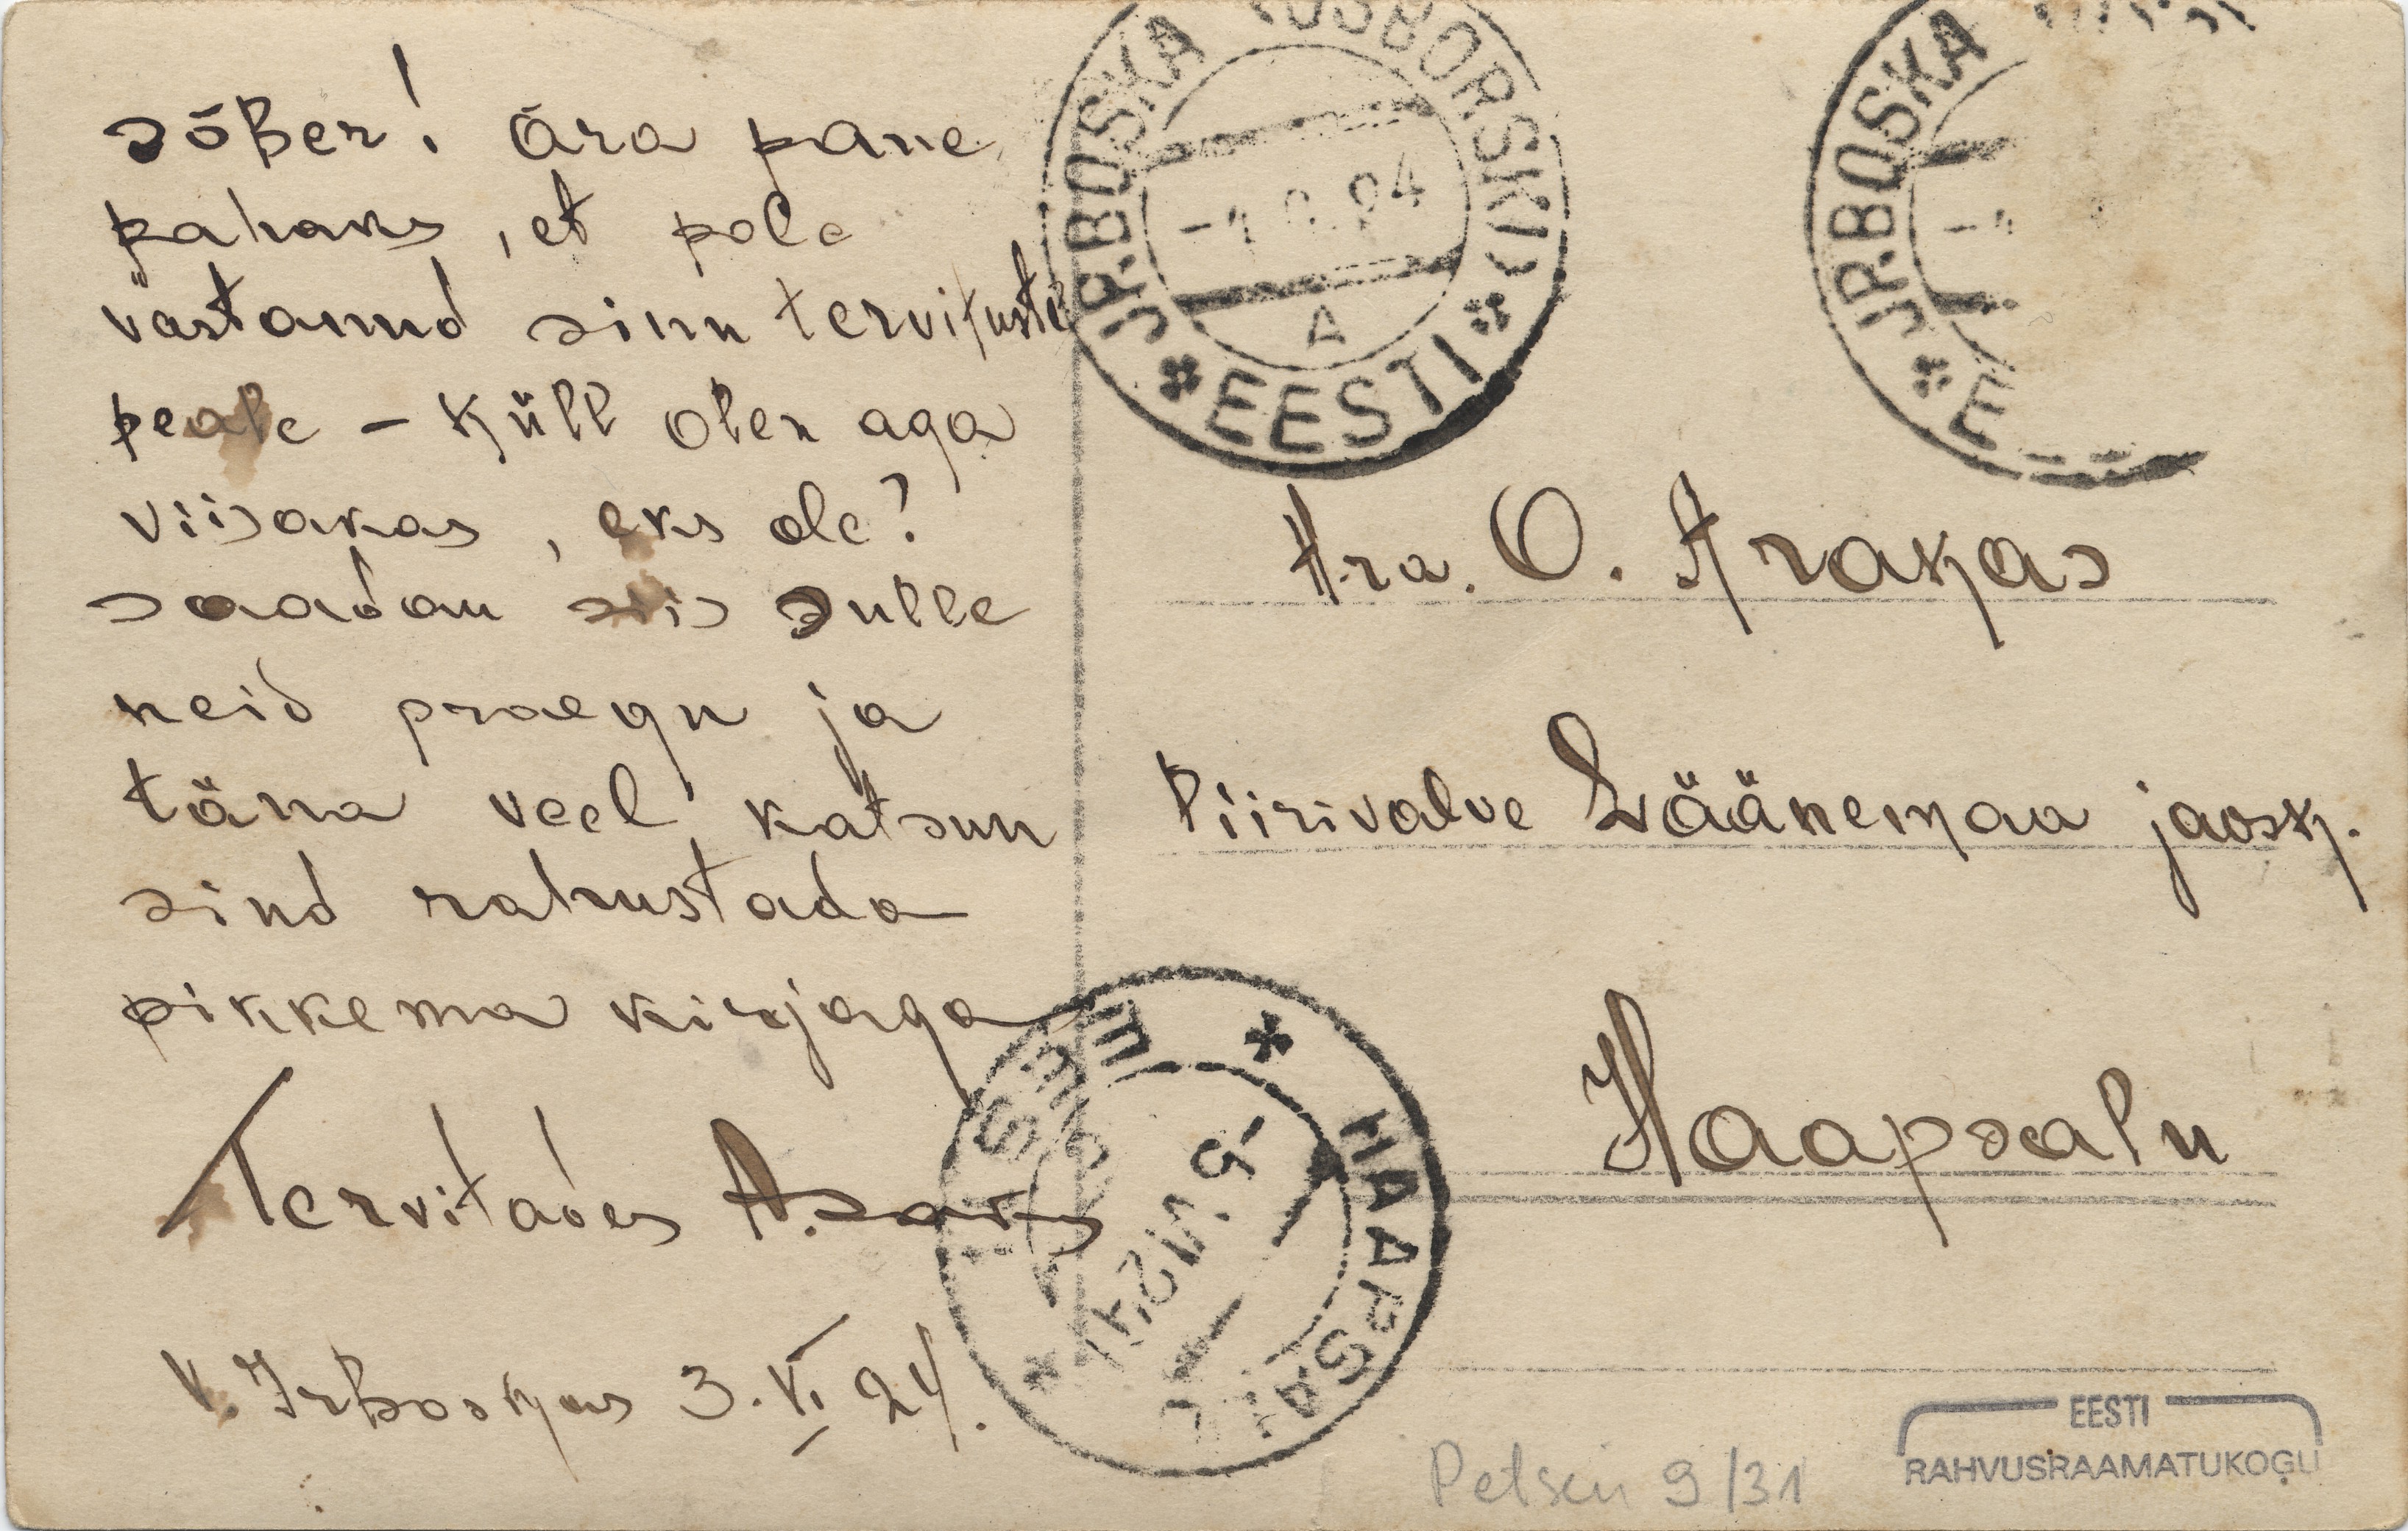 Sõber! Ära pane
pahaks, et pole
vastanud sinu tervituste
peale – küll olen aga
viisakas, eks ole?
Saadan siis Sulle
neid praegu ja
täna veel katsun
sind rahustada
pikkema kirjaga
Tervitades A. Saks
V. Irboskas 3. VI 24.
JRBOSKA
EESTI
A
JRBOSKA
Hra. O. Arakas
Piirivalve Läänemaa jaosk.
Haapsalu
EESTI
HAAPSALU
-5 VI 24
Petseri 9/31
EESTI
RAHVUSRAAMATUKOGU